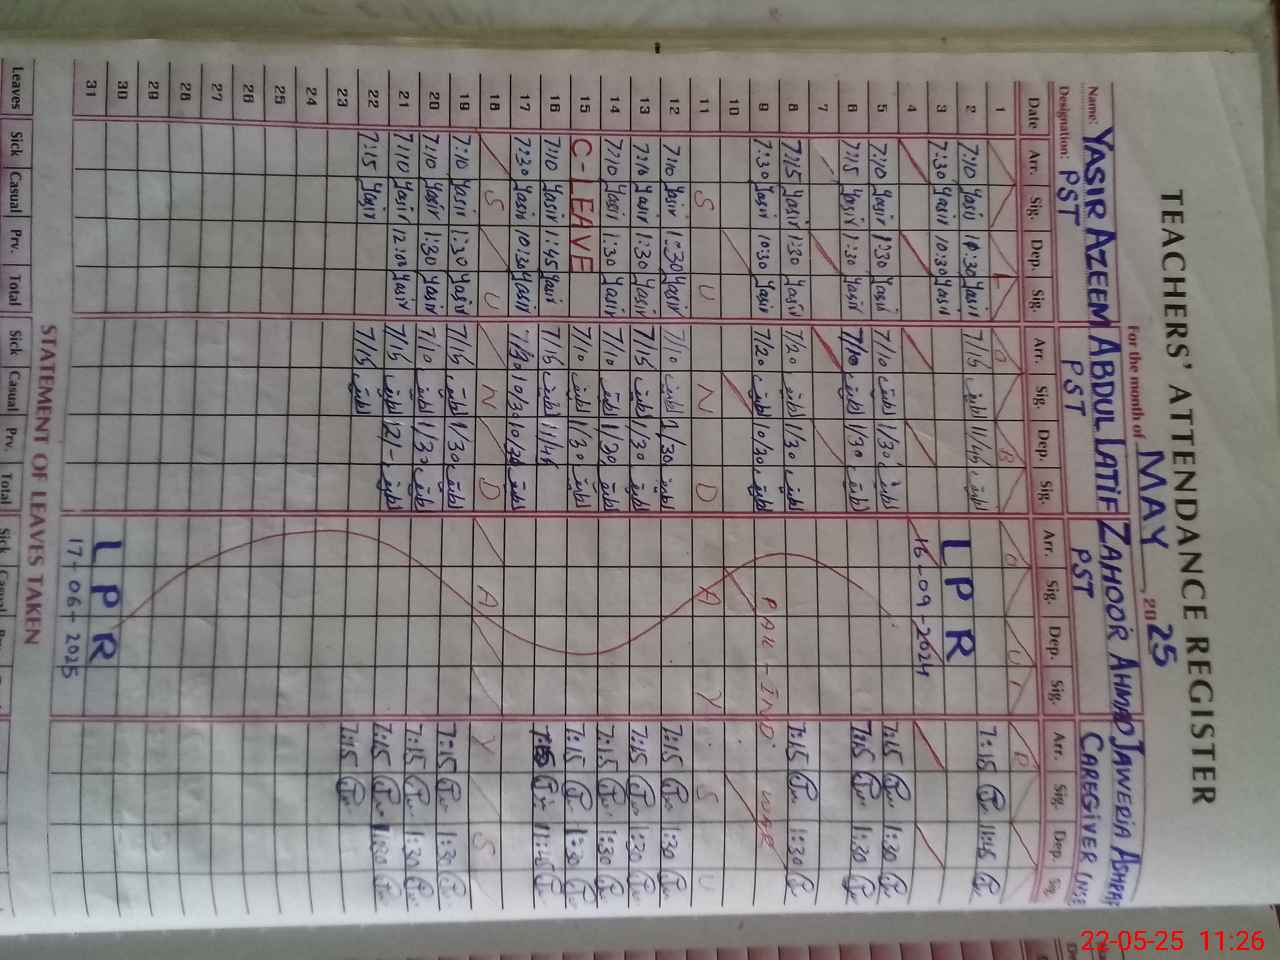 TEACHERS' ATTENDANCE REGISTER
For the month of MAY 2025
Name: YASIR AZEEM ABDUL LATIF ZAHOOR AHMAD JAWERIA ASHRAF
Designation: PST PST PST CAREGIVER
Date Arr. Sig. Dep. Sig. Arr. Sig. Dep. Sig. Arr. Sig. Dep. Sig. Arr. Sig. Dep. Sig.
1 L A B O U R
2 7:10 Yasir Yasir 7/15 لطیف 11/45 لطیف 7:15 11:45
3 7:30 Yasir 10:30 Yasir LPR
4 16-09-2024
5 7:10 Yasir 1:30 Yasir 7/10 لطیف 1/30 لطیف 7:15 1:30
6 7:15 Yasir 1:30 Yasir 7/10 لطیف 1/30 لطیف 7:15 1:30
7
8 7:15 Yasir 1:30 Yasir 7/20 لطیف 1/30 لطیف 7:15 1:30
9 7:30 Yasir 10:30 Yasir 7/20 لطیف 10/30 لطیف PAK-IND WAR
10
11 S U N D A Y S U
12 7:10 Yasir 1:30 Yasir 7/10 لطیف 1/30 لطیف 7:15 1:30
13 7:10 Yasir 1:30 Yasir 7/15 لطیف 1/30 لطیف 7:15 1:30
14 7:10 Yasir 1:30 Yasir 7/10 لطیف 1/30 لطیف 7:15 1:30
15 C-LEAVE 7/10 لطیف 1/30 لطیف 7:15 1:30
16 7:10 Yasir 1:45 Yasir 7/15 لطیف 11/45 لطیف 7:15 11:45
17 7:30 Yasir 10:30 Yasir 7/30 10/30 لطیف
18 S U N D A Y S
19 7:10 Yasir 1:30 Yasir 7/15 لطیف 1/30 لطیف 7:15 1:30
20 7:10 Yasir 1:30 Yasir 7/10 لطیف 1/30 لطیف 7:15 1:30
21 7:10 Yasir 12:00 Yasir 7/15 لطیف 12/- لطیف 7:15 11:30
22 7:15 Yasir 7/15 لطیف 7:15
23
24
25
26
27
28
29
30
31 LPR
17-06-2025
STATEMENT OF LEAVES TAKEN
Leaves Sick Casual Prv. Total Sick Casual Prv. Total Sick Casual
22-05-25 11:26